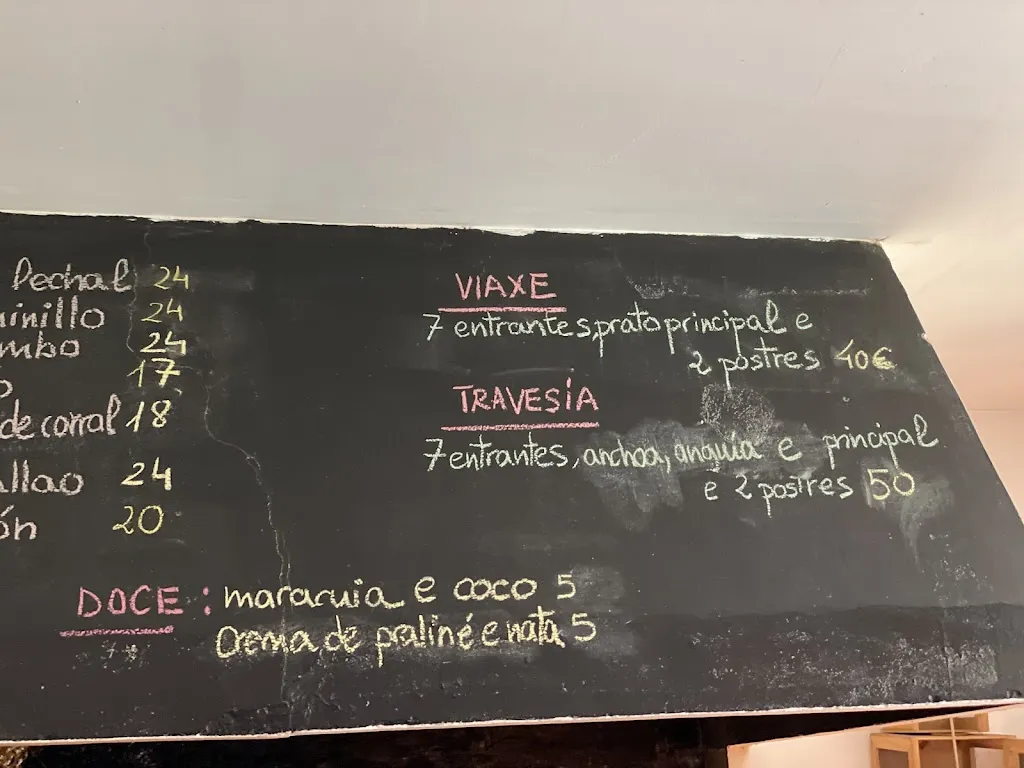 lechal 24
inillo 24
mbo 24
17
de corral 18
allao 24
ón 20
VIAXE
7 entrantes, prato principal e
2 postres 40€
TRAVESÍA
7 entrantes, anchoa, anguía e principal
e 2 postres 50
DOCE: maracuia e coco 5
Crema de praliné e nata 5